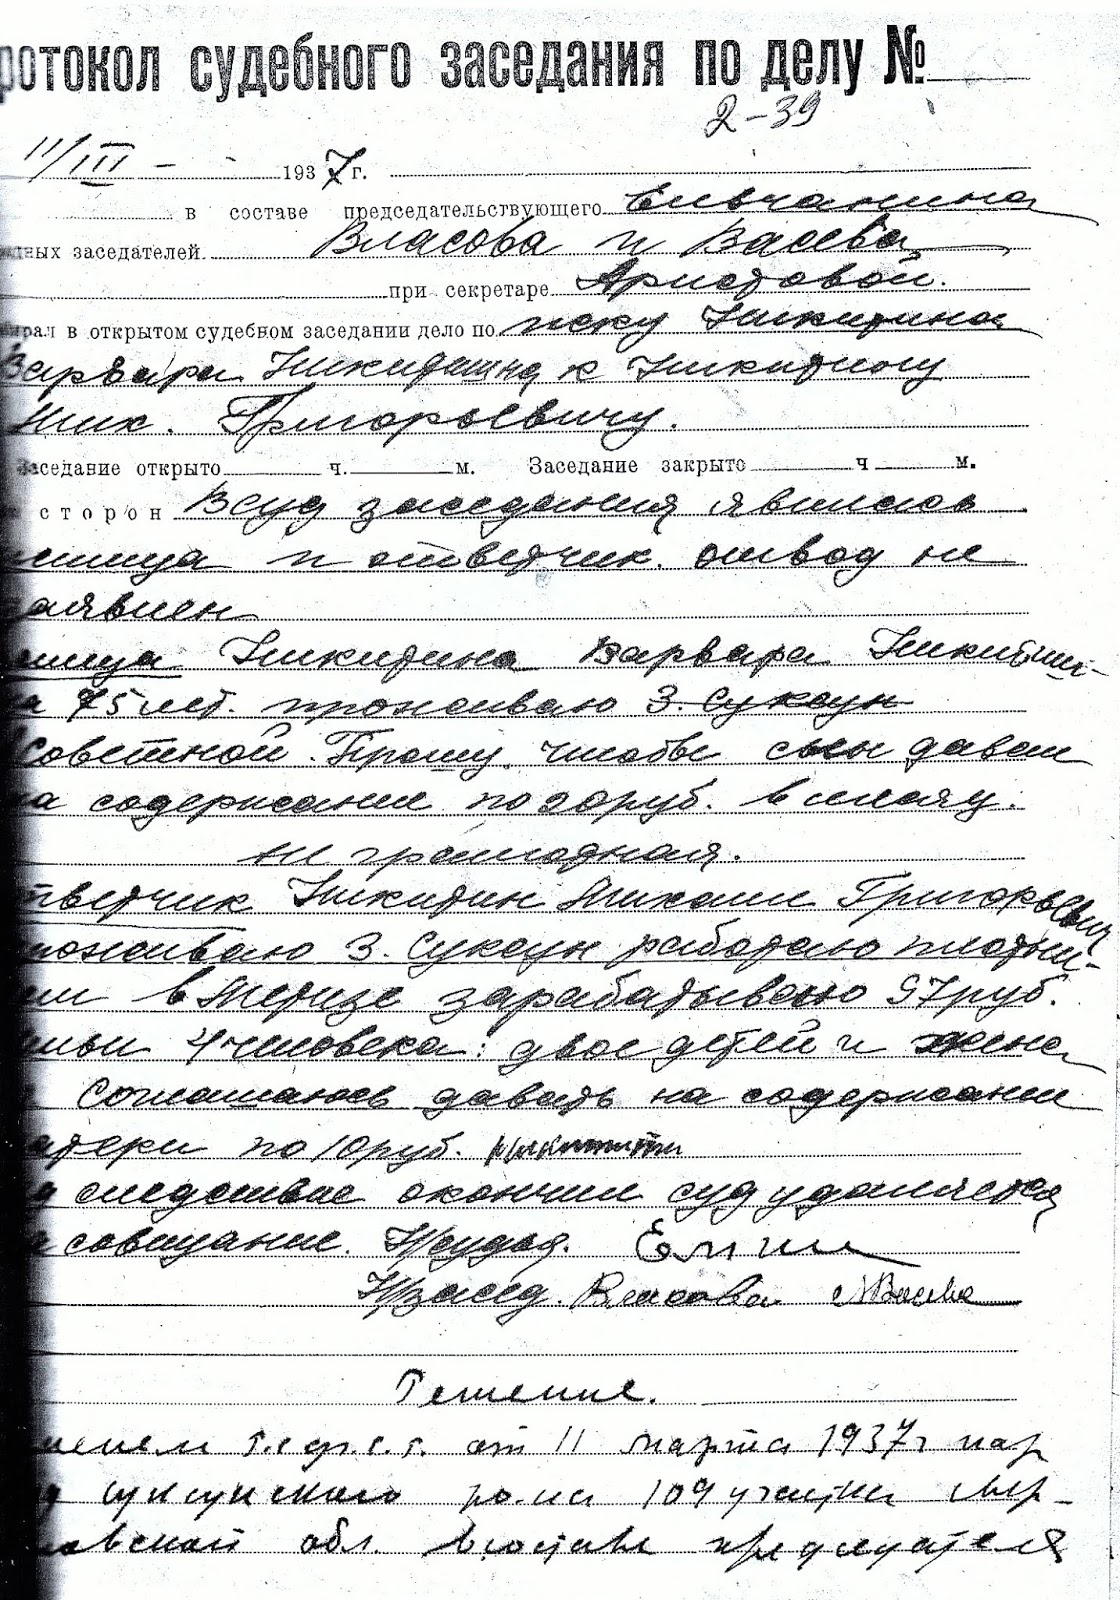 ротокол судебного заседания по делу №
2-39
11/III - 1937 г.
в составе председательствующего
дных заседателей Власова и Васева
при секретаре Аристовой.
рал в открытом судебном заседании дело по иску Никитина
Варвара Никитишна к Никитину
Мих. Григорьевичу.
Заседание открыто ч. м. Заседание закрыто ч м.
сторон В суд заседания явилась
истица и ответчик. отвод не
заявлен
истица Никитина Варвара Никитиш-
на 75 лет. проживаю З. Суксун
Советной. Прошу чтобы сын давал
на содержание по 20 руб. в месяц.
не грамотная.
тветчик Никитин Михаил Григорьевич
проживаю З. Суксун работаю плотни-
ком в Метизе зарабатываю 97 руб.
семьи 4 человека: двое детей и жена
Соглашаюсь давать на содержание
матери по 10 руб.
суд следствие окончил суд удаляется
на совещание. Н/судья.
Н/засед. Власова Васева
Решение.
именем Р.С.Ф.С.Р. от 11 марта 1937 г нар
суд суксунского р-на 109 участка Свер-
ловской обл. в составе председателя